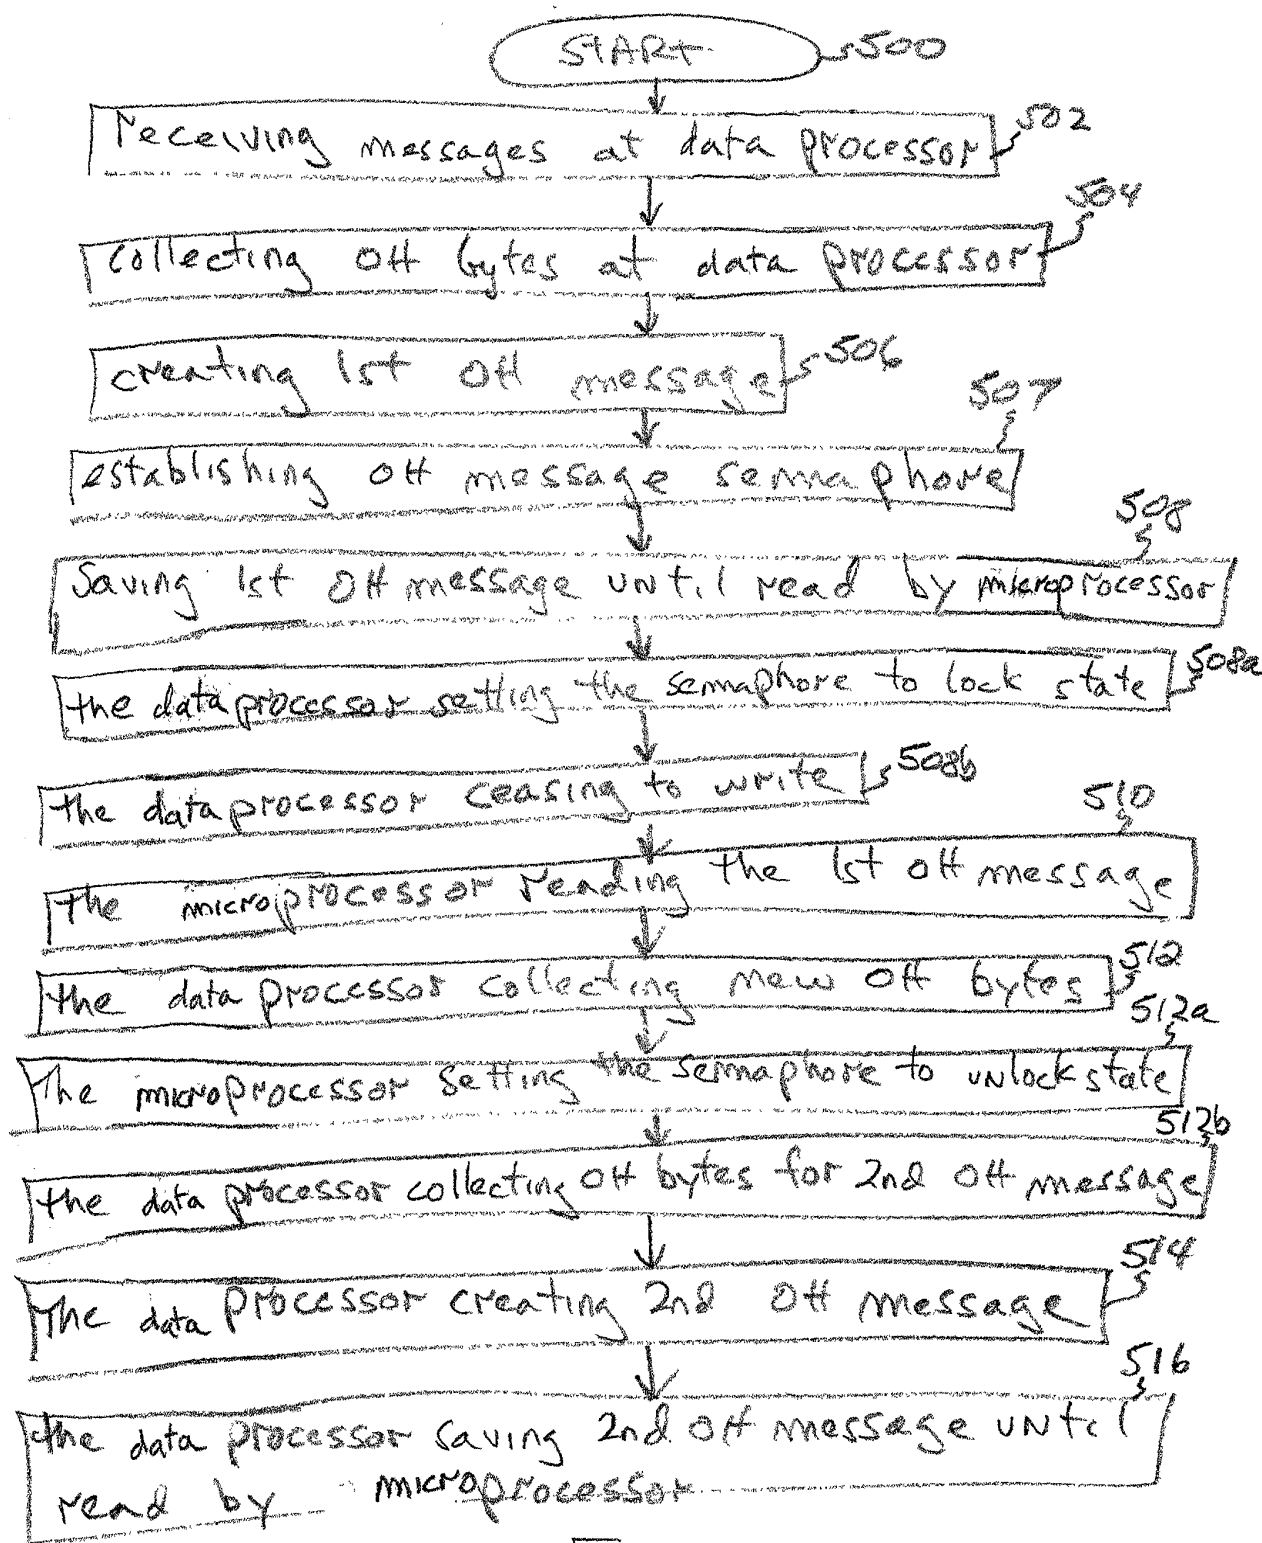 START 500
receiving messages at data processor 502
collecting OH bytes at data processor 504
creating 1st OH message 506
establishing OH message semaphore 507
Saving 1st OH message until read by microprocessor 508
the data processor setting the semaphore to lock state 508a
the data processor ceasing to write 508b
the microprocessor reading the 1st OH message 510
the data processor collecting new OH bytes 512
The microprocessor setting the semaphore to unlock state 512a
the data processor collecting OH bytes for 2nd OH message 512b
The data processor creating 2nd OH message 514
the data processor saving 2nd OH message until 516
read by microprocessor